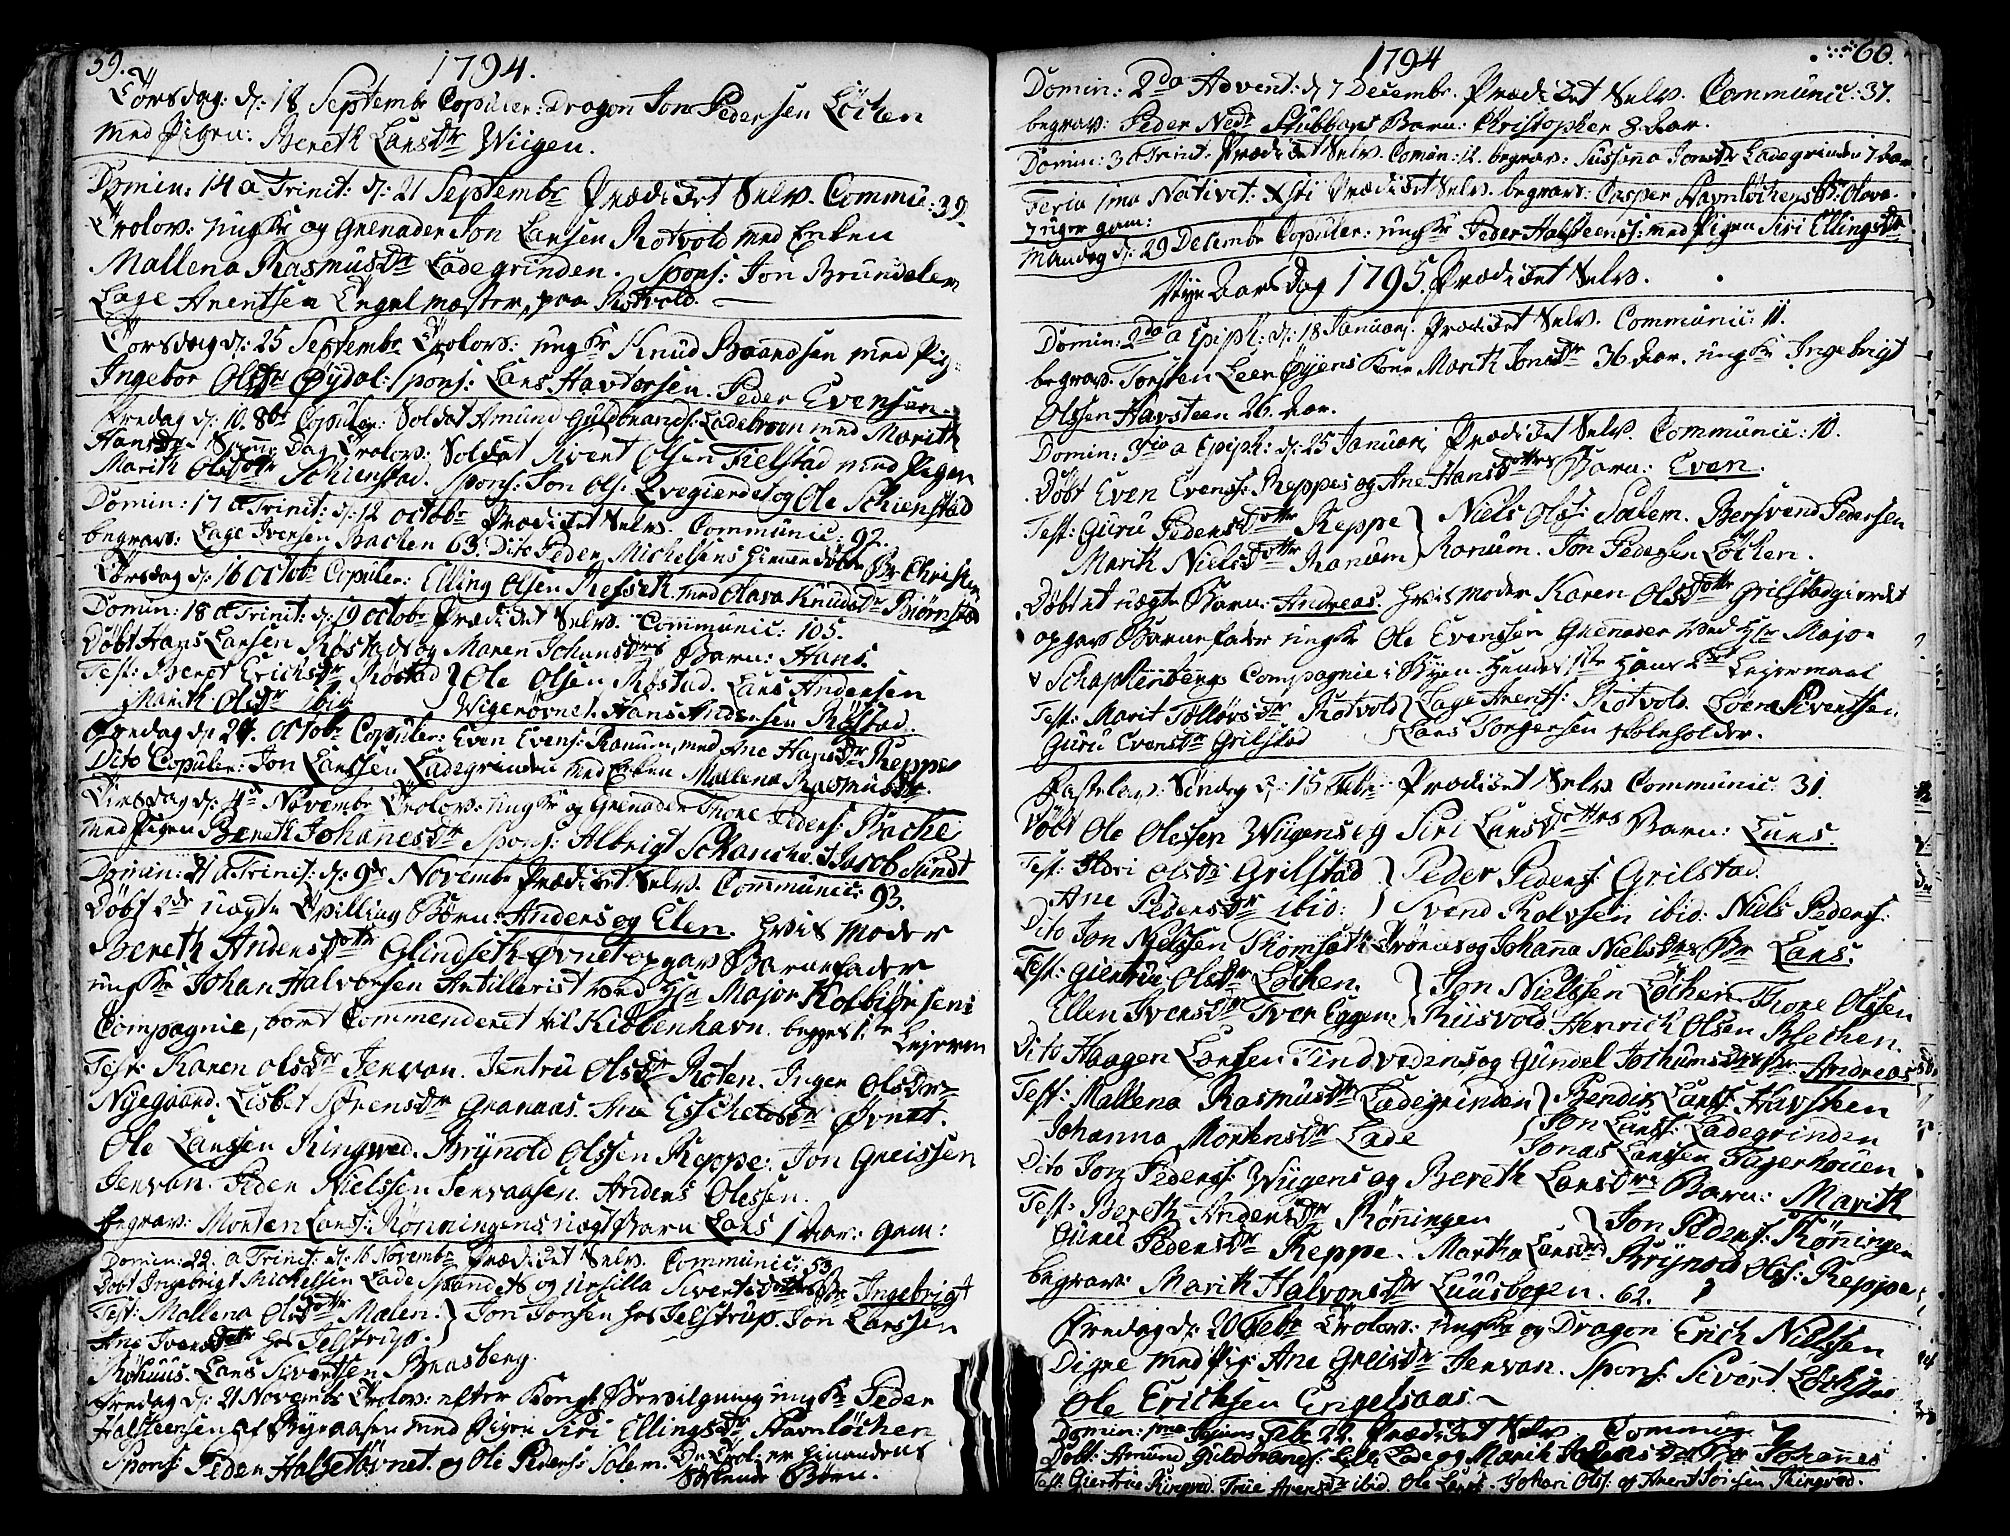 59.
1794.
Torsdag: d: 18 Septembr Copuler: Dragon Jon Pedersen Löchen
med Pigen: Bereth LarsDtr Wiigen.
Domin: 14 a Trinit: d: 21 Septembr Prædicet Selv. Commu: 39.
Trolov: ungKr og Grenader Jon Larsen Rotvold med Enken
Mallena RasmusDtr Ladegrinden. Spons: Jon Brundalen
Lage Arentsen Engelmester, paa Rotvold.
Torsdag d: 25 Septembr Trolov: ungKr Knud Baardsen med Pig:
Ingebor OlsDtr Øydal: Spons: Lars Havdorsen. Peder Evensen.
Fredag d: 10. 8br Copuler: Soldat Amund Guldbrands: Ladebroen med Marith
HansDtr Samme Dag Trolov: Soldat Sivert Olsen Fielstad med Pigen
Marith OlsDotr Schienstad. Spons: Jon Ols: Qvegierdet og Ole Schienstad
Domin: 17 a Trinit: d: 12 octobr Prædicet Selv. Communic: 92.
begrav: Lage Iversen Backen 63. Dito Peder Michelsens Br Christen
Torsdag d: 16 octobr Copuler: Elling Olsen med Olava KnudsDtr Biørnstad
Domin: 18 a Trinit: d: 19 octobr Prædicet Selv. Communic: 105.
Døbt Hans Larsen Røstads og Maren JohansDtrs Barn: Hans.
Test: Beret ErichsDtr Røstad } Ole Olsen Røstad. Lars Andersen
Marith OlsDtr ibid } Wigenøvnet. Hans Andersen Røstad.
Fredag d: 24. octobr Copuler: Even Evens: Ranum, med Ane HansDtr Reppe
Dito Copuler: Jon Larssen Ladegrinden med Enken Mallena RasmusDtr.
Tirsdag d: 4de Novembr Trolov: ungKr og Grenader Thore Peders: Backe
med Pigen Bereth JohanesDtr Spons: Albrigt Schanche. Jacob Sundt
Domin: 21 a Trinit: d: 9de Novembr Prædicet Selv. Communic: 93.
Døbt 2de uægte Tvilling Børn: Anders og Elen. Hvis Moder
Bereth AndersDotr Glindseth Øvnet opgav Barnefader
ungKr Johan Halvorsen Artillerist ved Hr Major Kolbiørnsens
Compagnie, bort Commenderet til Kiøbenhavn. begges 1ste Lejerm
Test: Karen OlsDtr Jervan. Jentru OlsDtr Roten. Inger OlsDtr
Nyegaard. Lisbet SørensDtr Granaas. Ane Øvnet.
Ole Larssen Ringved. Brynold Olssen Reppe. Jon Greissen
Jervan. Peder Nielssen Jervaasen. Anders Olessen.
begrav: Morten Lars: Rønningens uægt Barn Lars 1 Aar: gam:
Domin: 22. a Trinit: d: 16 Novembr Prædicet Selv. Communic: 53.
Døbt Ingebrigt Michelsen Lade og Ursilla SivertsDotters Br Ingebrigt
Test: Mallena OlsDotr Malen. } Jon Jonsen hos Jelstrup. Jon Larssen
Ane IversDotr hos Jelstrup. }
Røhuus. Lars Sivertsen Brasberg.
Fredag d: 21 Novembr Trolov: efter Kongl: Bevilgning ungKr Peder
Halsteensen af Byeaasen med Pigen Siri EllingsDtr Havnlöchen
Spons: Peder Halset Øvnet. og Ole Peders: Solem. De Trol: er hinandens
Sødskende Børn.
1794
60.
Domin: 2da Advent: d 7 Decembr. Prædicet Selv. Communic: 37.
begrav: Peder Nedr Stubbans Barn: Christopher 3. Aar.
Domin: 3 Prædicet Selv. Comun: 12. begrav: Sussana JonsDr Ladegrinden 7 Aar
Feria 1ma Nativit: Xsti Prædicet Selv. begrav: Casper Havnlöchens B: Olava.
7 uger gam:
Mandag d: 29 Decembr Copuler: ungKr Peder Halsteens: med Pigen Siri EllingsDtr
Nye Aars Dag 1795. Prædicet Selv.
Domin: 2da a Epiph: d: 18 Januarj: Prædicet Selv. Communic: 11.
begrav: Torsten Leer Øyens Kone Marith JonsDtr 36 Aar. ungKr Ingebrigt
Olssen Havsteen 26 Aar.
Domin: 3tia a Epiph: d: 25 Januari Prædicet Selv. Communic: 10.
Døbt Even Evens: Reppes og Ane HansDotters Barn: Even.
Test: Guru PedersDotr Reppe } Niels Ols: Solem. Bersvend Pedersen
Marith NielsDotr Ranum } Ranum. Jon Pedersen Löchen.
Døbt et uægte Barn: Andreas. hvis Moder Karen OlsDotr Grilstadgierdet
opgav Barnefader ungKr Ole Evensen Grenader ved Hr Major
v Schaphenberg Compagnie i Byen. hendes 1ste hans 2det Lejermaal
Test: Marit TollovsDtr Rotvold } Lage Arents: Rotvold. Sivertsen
Guru EvensDtr Grilstad } Lars Jørgensen skoleholder.
Fastelav: Søndag d: 15 Febr: Prædicet Selv Communic: 31.
Døbt Ole Olessen Wiigens og Siri LarsDotters Barn: Lars.
Test: Ildri OlsDr Grilstad } Peder Peders: Grilstad.
Ane PedersDtr ibid: } Svend Rolvsen ibid: Niels Peders:
Dito Jon Nielssen og Johana NielsDtrs Br Lars:
Test: Giertrue OlsDtr Löchen. } Jon Nielssen Löchen. Thore Olssen
Ellen IversDtr Iver Eggen } Riisvold. Henrich Olsen Blechen.
Dito Haagen Larsen Tindvedens og Gundel JochumsDtrs Br: Andreas
Test: Mallena RasmusDtr Ladegrinden } Bendix Lars: Havsteen
Johanna MortensDtr Lade } Jon Lars: Ladegrinden
Jonas Larssen Fagerhouen
Dito Jon Peders: Wiigens og Bereth LarsDtrs Barn: Marith
Test: Bereth AndersDtr Röningen } Jon Peders: Röningen
Guru PedersDtr Reppe. Martha LarsDtr Brynold Ols: Reppe
begrav: Marith HalvorsDtr Luusbogen. 62.
Fredag d: 20 Febr Trolov: ungKr og Dragon Erich Nielssen
Digre med Pig: Ane GreisDtr Jervan. Spons: Sivert Löchen
Ole Ericksen Engelsaas.
Domin: 1ma Febr 22. Prædicet Selv Communic
Døbt: Amund Guldbrands: Lille Lade og Marith Br Johannes
Test: Giertrue Ringved. True ArensDtr ibid. Ole Lars:. Johan Ols: og Arent Ringved.